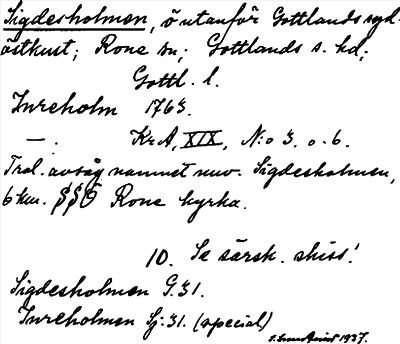 Sigdesholmen, ö utanför Gottlands syd-
östkust; Rone sn; Gottlands s. hd;
Gottl. l.
Inreholm 1763.
— . KrA, XIX, N:o 3. o. 6.
Trol. avsåg namnet nuv. Sigdesholmen,
6 km. SSO Rone kyrka.
10. Se särsk. skiss!
Sigdesholmen G.31.
Inreholmen Sj:31. (special)
1937.